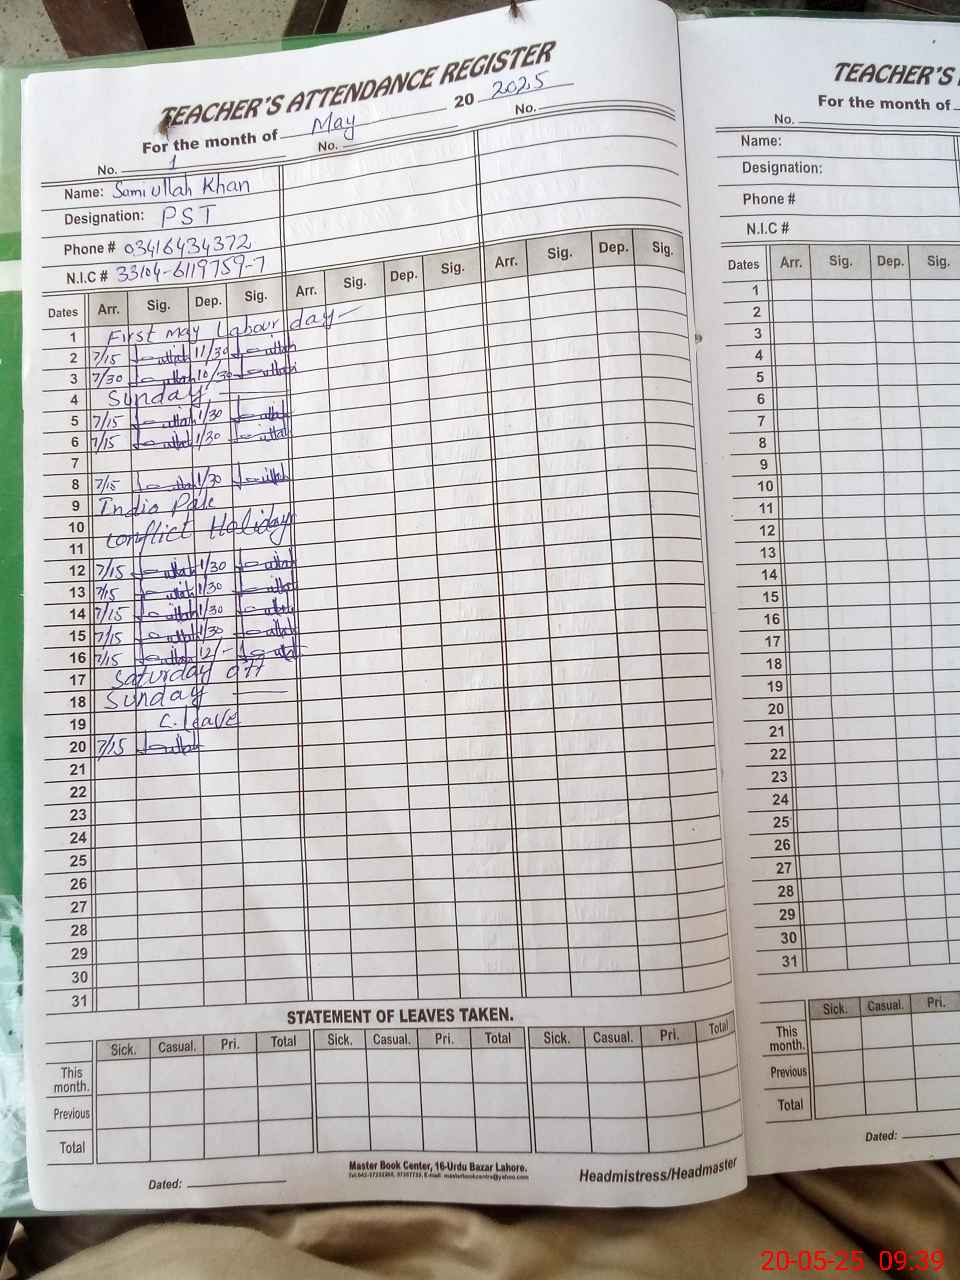 TEACHER'S ATTENDANCE REGISTER
For the month of May 20 2025
No. 1 No. No.
Name: Samiullah Khan
Designation: PST
Phone # 03416434372
N.I.C # 33104-6119759-7
Dates Arr. Sig. Dep. Sig. Arr. Sig. Dep. Sig. Arr. Sig. Dep. Sig.
1 First may Labour day
2 7/15 11/30
3 7/30 10/30
4 Sunday
5 7/15 1/30
6 7/15 1/30
7
8 7/15 1/30
9 India Pak
10 conflict Holiday
11
12 7/15 1/30
13 7/15 1/30
14 7/15 1/30
15 7/15 1/30
16 7/15 12/-
17 Saturday off
18 Sunday
19 C. leave
20 7/15
21
22
23
24
25
26
27
28
29
30
31
STATEMENT OF LEAVES TAKEN.
Sick. Casual. Pri. Total Sick. Casual. Pri. Total Sick. Casual. Pri. Total
This month.
Previous
Total
Master Book Center, 16-Urdu Bazar Lahore.
Dated:
Headmistress/Headmaster
TEACHER'S
For the month of
No.
Name:
Designation:
Phone #
N.I.C #
Dates Arr. Sig. Dep. Sig.
1
2
3
4
5
6
7
8
9
10
11
12
13
14
15
16
17
18
19
20
21
22
23
24
25
26
27
28
29
30
31
Sick. Casual. Pri.
This month.
Previous
Total
Dated:
20-05-25 09:39